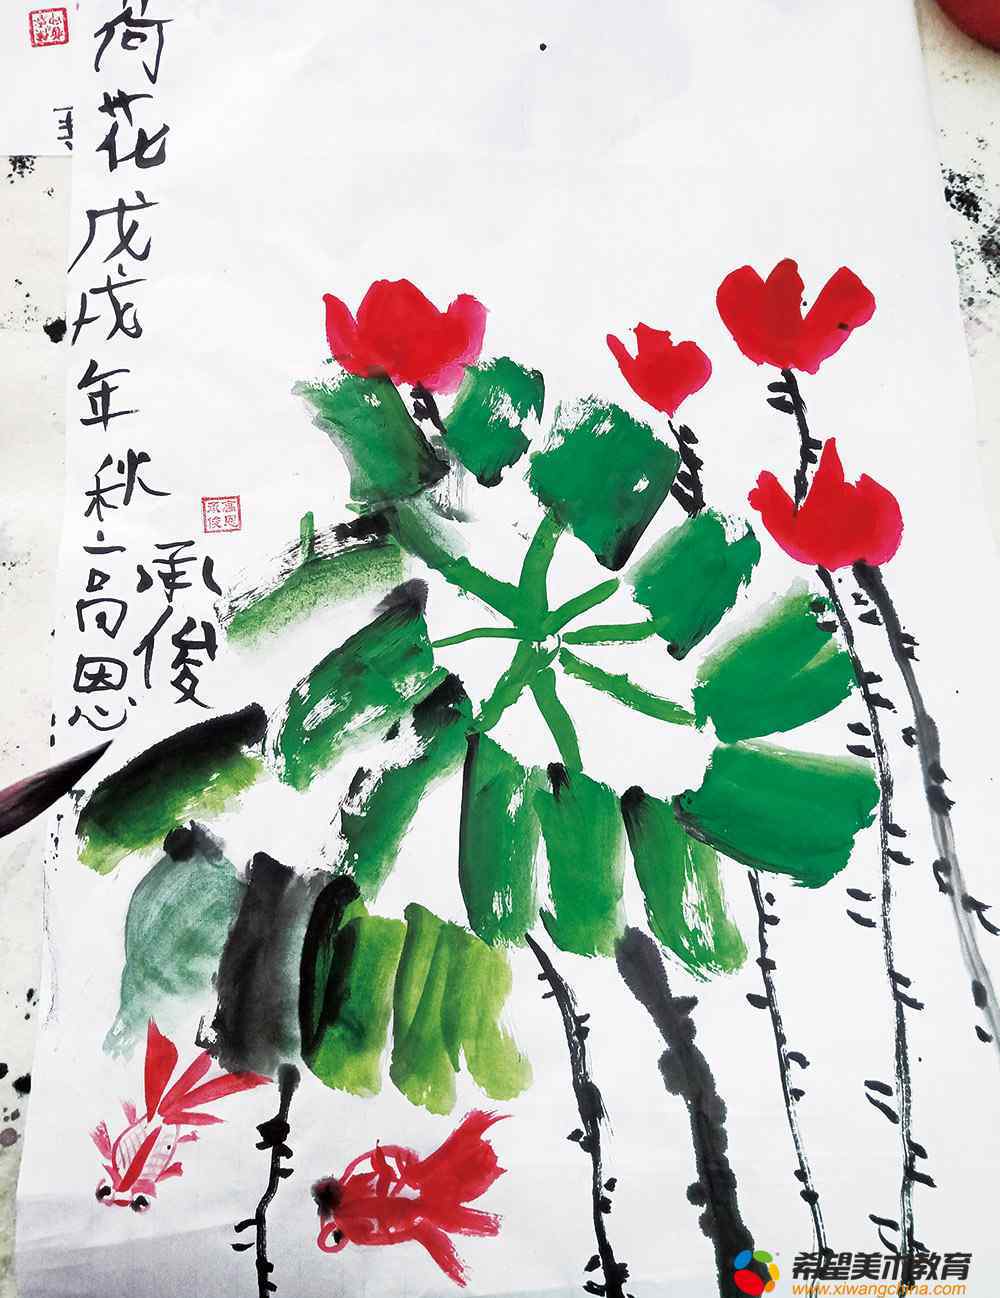 荷花戊戌年秋高恩
承俊
高恩
承俊
希望美术教育
www.xiwangchina.com